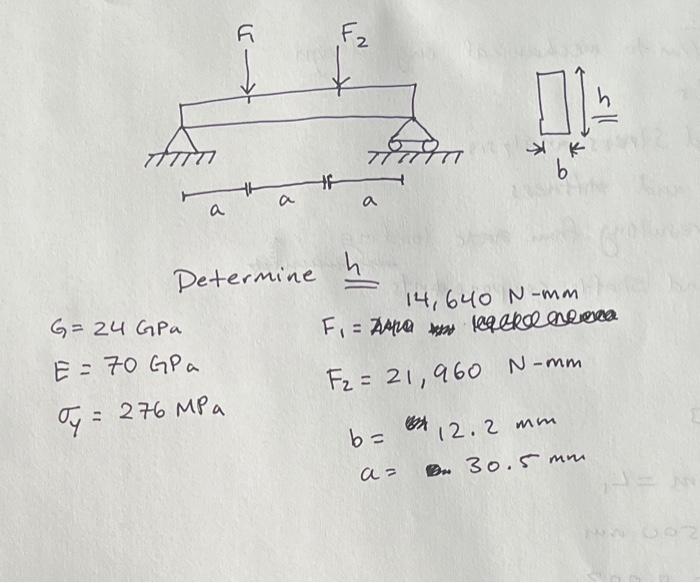 F₁ F₂
h
b
a a a
Determine h
14,640 N-mm
G = 24 GPa F₁ =
E = 70 GPa F₂ = 21,960 N-mm
σy = 276 MPa
b = 12.2 mm
a = 30.5 mm